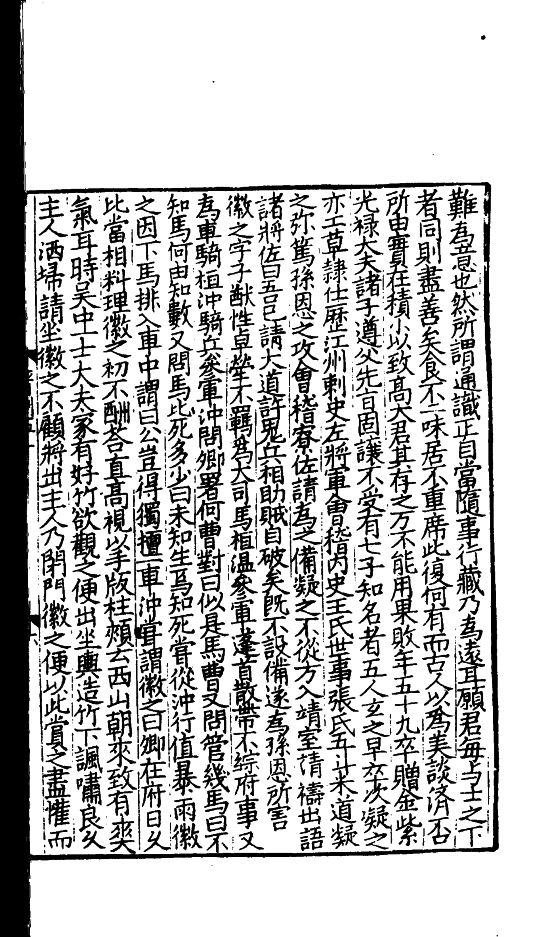 難為意也然所謂通識正自當隨事行藏乃為遠耳願君每與士之下
者同則盡善矣食不二味居不重席此復何有而古人以為美談濟否
所由實在積小以致高大君其存之万不能用果敗年五十九卒贈金紫
光禄大夫諸子遵父先旨固讓不受有七子知名者五人玄之早卒次凝之
亦工草隷仕歷江州刺史左將軍會稽內史王氏世事張氏五斗米道凝
之弥篤孫恩之攻會稽寮佐請為之備凝之不從方入靖室請禱出語
諸將佐曰吾已請大道許鬼兵相助賊自破矣既不設備遂為孫恩所害
徽之字子猷性卓犖不羈為大司馬桓溫參軍蓬首散帶不綜府事又
為車騎桓沖騎兵參軍沖問卿署何曹對曰似是馬曹又問管幾馬曰不
知馬何由知數又問馬比死多少曰未知生焉知死嘗從沖行值暴雨徽
之因下馬排入車中謂曰公豈得獨擅一車沖嘗謂徽之曰卿在府日久
比當相料理徽之初不酬答直高視以手版柱頰云西山朝來致有爽
氣耳時吳中一士大夫家有好竹欲觀之便出坐輿造竹下諷嘯良久
主人洒埽請坐徽之不顧將出主人乃閉門徽之便以此賞之盡懽而